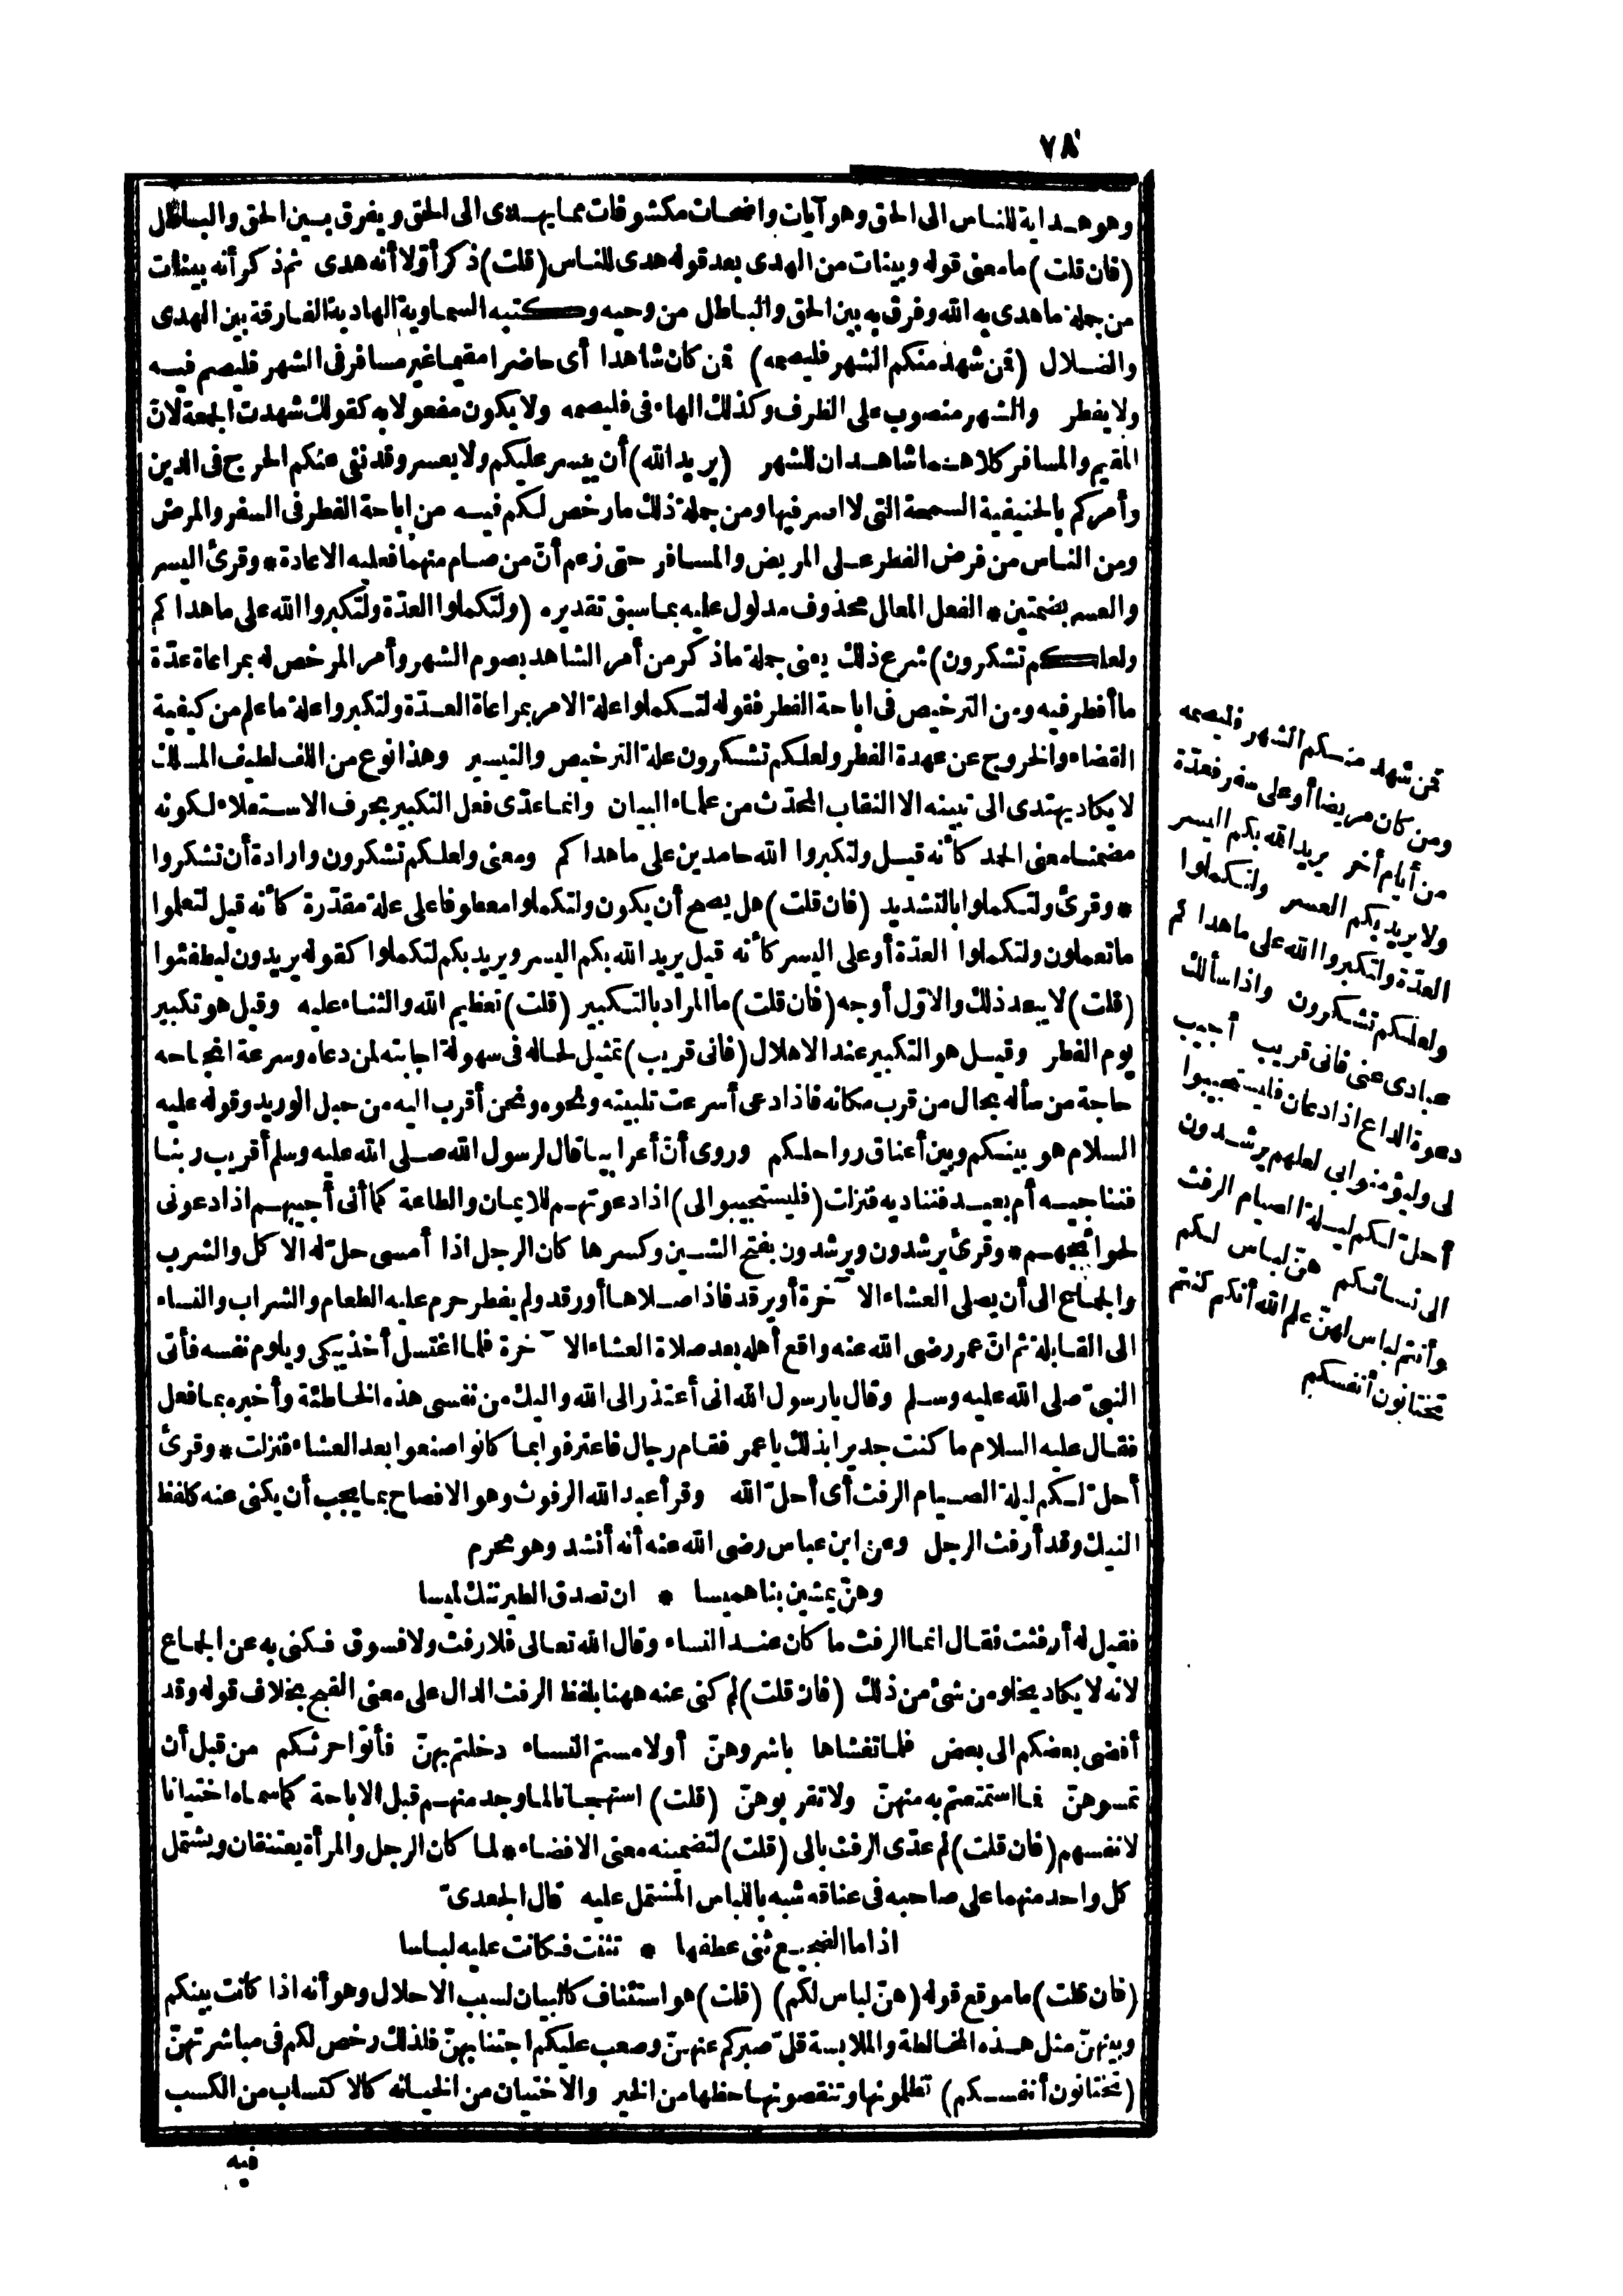 ٧٨
وهو هداية للناس الى الحق وهو آيات واضحات مكشوفات مما يهدى الى الحق ويفرق بين الحق والباطل
(فان قلت) ما معنى قوله وبينات من الهدى بعد قوله هدى للناس (قلت) ذكر أوّلا أنه هدى ثم ذكر أنه بينات
من جملة ما هدى به الله وفرق به بين الحق والباطل من وحيه وكتبه السماوية الهادية الفارقة بين الهدى
والضلال (فمن شهد منكم الشهر فليصمه) فمن كان شاهدا أى حاضرا مقيما غير مسافر فى الشهر فليصم فيه
ولا يفطر والشهر منصوب على الظرف وكذلك الهاء فى فليصمه ولا يكون مفعولا به كقولك شهدت الجمعة لانّ
المقيم والمسافر كلاهما شاهدان للشهر (يريد الله) أن ييسر عليكم ولا يعسر وقد نفى عنكم الحرج فى الدين
وأمركم بالحنيفية السمحة التى لا اصر فيها ومن جملة ذلك ما رخص لكم فيه من اباحة الفطر فى السفر والمرض
ومن الناس من فرض الفطر على المريض والمسافر حتى زعم أنّ من صام منهما فعليه الاعادة * وقرئ اليسر
والعسر بضمتين * الفعل المعلل محذوف مدلول عليه بما سبق تقديره (ولتكملوا العدّة ولتكبروا الله على ما هداكم
ولعلكم تشكرون) شرع ذلك يعنى جملة ما ذكر من أمر الشاهد بصوم الشهر وأمر المرخص له بمراعاة عدّة
ما أفطر فيه ومن الترخيص فى اباحة الفطر فقوله لتكملوا علة الامر بمراعاة العدّة ولتكبروا علة ما علم من كيفية
القضاء والخروج عن عهدة الفطر ولعلكم تشكرون علة الترخيص والتيسير وهذا نوع من اللف لطيف المسلك
لا يكاد يهتدى الى تبينه الا النقاب المحدّث من علماء البيان وانما عدّى فعل التكبير بحرف الاستعلاء لكونه
مضمنا معنى الحمد كأنه قيل ولتكبروا الله حامدين على ما هداكم ومعنى ولعلكم تشكرون وارادة أن تشكروا
* وقرئ ولتكملوا بالتشديد (فان قلت) هل يصح أن يكون ولتكملوا معطوفا على علة مقدّرة كأنه قيل لتعلموا
ما تعملون ولتكملوا العدّة أو على اليسر كأنه قيل يريد الله بكم اليسر ويريد بكم لتكملوا كقوله يريدون ليطفئوا
(قلت) لا يبعد ذلك والاوّل أوجه (فان قلت) ما المراد بالتكبير (قلت) تعظيم الله والثناء عليه وقيل هو تكبير
يوم الفطر وقيل هو التكبير عند الاهلال (فانى قريب) تمثيل لحاله فى سهولة اجابته لمن دعاه وسرعة انجاحه
حاجة من سأله بحال من قرب مكانه فاذا دعى أسرعت تلبيته ونحوه ونحن أقرب اليه من حبل الوريد وقوله عليه
السلام هو بينكم وبين أعناق رواحلكم وروى أنّ أعرابيا قال لرسول الله صلى الله عليه وسلم أقريب ربنا
فنناجيه أم بعيد فنناديه فنزلت (فليستجيبوا لى) اذا دعوتهم للايمان والطاعة كما أنى أجيبهم اذا دعونى
لحوائجهم * وقرئ يرشدون ويرشدون بفتح الشين وكسرها كان الرجل اذا أمسى حلّ له الاكل والشرب
والجماع الى أن يصلى العشاء الآخرة أو يرقد فاذا صلاها أو رقد ولم يفطر حرم عليه الطعام والشراب والنساء
الى القابلة ثم انّ عمر رضى الله عنه واقع أهله بعد صلاة العشاء الآخرة فلما اغتسل أخذ يبكى ويلوم نفسه فأتى
النبىّ صلى الله عليه وسلم وقال يا رسول الله انى أعتذر الى الله واليك من نفسى هذه الخاطئة وأخبره بما فعل
فقال عليه السلام ما كنت جديرا بذلك يا عمر فقام رجال فاعترفوا بما كانوا صنعوا بعد العشاء فنزلت * وقرئ
أحلّ لكم ليلة الصيام الرفث أى أحلّ الله وقرأ عبد الله الرفوث وهو الافصاح بما يجب أن يكنى عنه كلفظ
النيك وقد أرفث الرجل وعن ابن عباس رضى الله عنه أنه أنشد وهو محرم
وهنّ يمشين بنا هميسا * ان تصدق الطير ننك لميسا
فقيل له أرفثت فقال انما الرفث ما كان عند النساء وقال الله تعالى فلا رفث ولا فسوق فكنى به عن الجماع
لانه لا يكاد يخلو من شئ من ذلك (فان قلت) لم كنى عنه ههنا بلفظ الرفث الدال على معنى القبح بخلاف قوله وقد
أفضى بعضكم الى بعض فلما تغشاها باشروهنّ أو لامستم النساء دخلتم بهنّ فأتوا حرثكم من قبل أن
تمسوهنّ فما استمتعتم به منهنّ ولا تقربوهنّ (قلت) استهجانا لما وجد منهم قبل الاباحة كما سماه اختيانا
لانفسهم (فان قلت) لم عدّى الرفث بالى (قلت) لتضمينه معنى الافضاء * لما كان الرجل والمرأة يعتنقان ويشتمل
كل واحد منهما على صاحبه فى عناقه شبه باللباس المشتمل عليه قال الجعدىّ
اذا ما الضجيع ثنى عطفها * تثنت فكانت عليه لباسا
(فان قلت) ما موقع قوله (هنّ لباس لكم) (قلت) هو استئناف كالبيان لسبب الاحلال وهو أنه اذا كانت بينكم
وبينهنّ مثل هذه المخالطة والملابسة قلّ صبركم عنهنّ وصعب عليكم اجتنابهنّ فلذلك رخص لكم فى مباشرتهنّ
(تختانون أنفسكم) تظلمونها وتنقصونها حظها من الخير والاختيان من الخيانة كالاكتساب من الكسب
فيه
فمن شهد منكم الشهر فليصمه
ومن كان مريضا أو على سفر فعدّة
من أيام أخر يريد الله بكم اليسر
ولا يريد بكم العسر ولتكملوا
العدّة ولتكبروا الله على ما هداكم
ولعلكم تشكرون واذا سألك
عبادى عنى فانى قريب أجيب
دعوة الداع اذا دعان فليستجيبوا
لى وليؤمنوا بى لعلهم يرشدون
أحلّ لكم ليلة الصيام الرفث
الى نسائكم هنّ لباس لكم
وأنتم لباس لهنّ علم الله أنكم كنتم
تختانون أنفسكم